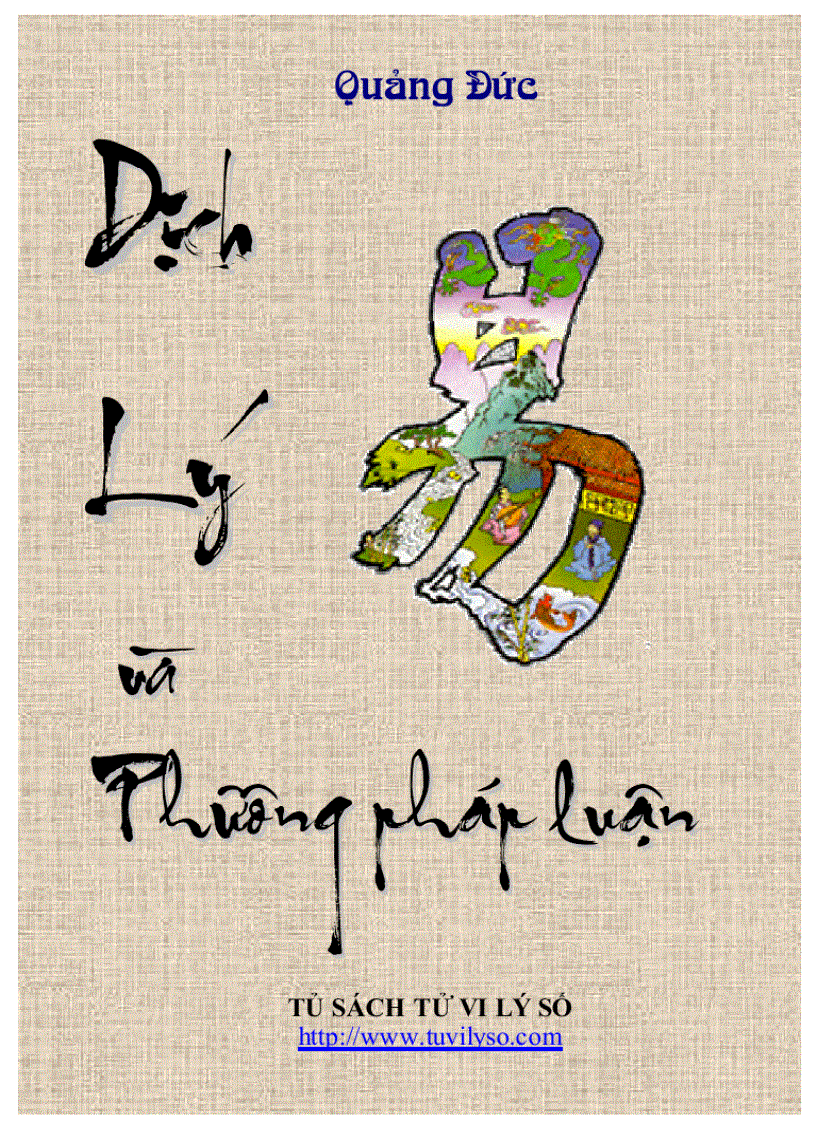 Quảng Đức
Dịch
易
Lý
và
Phương pháp luận
TỦ SÁCH TỬ VI LÝ SỐ
http://www.tuvilyso.com